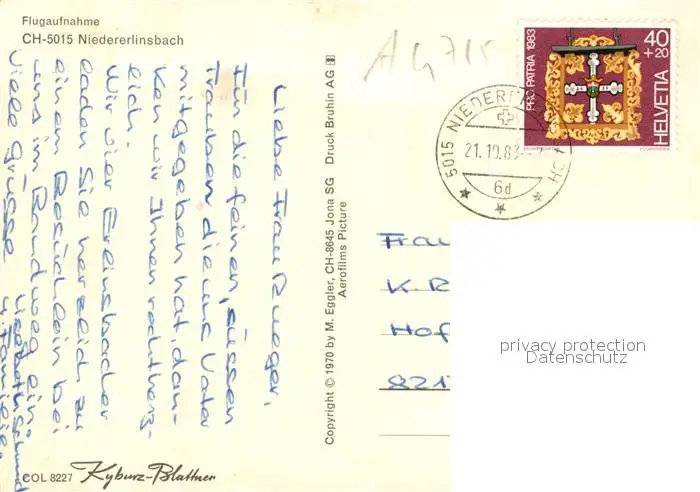 Flugaufnahme
CH-5015 Niedererlinsbach
Liebe Frau Rueger,
Für die feinen, süssen
Trauben die uns Vater
mitgegeben hat, dan-
ken wir Ihnen recht herz-
lich.
Wir vier Erlinsbacher
laden Sie herzlich zu
einem Besüchlein bei
uns im Rondweg ein.
Viele Grüsse
Lisbeth Schmid
u. Familie.
COL 8227 Kyburz-Blattner
Copyright © 1970 by M. Eggler, CH-8645 Jona SG Druck Bruhin AG
Aerofilms Picture
A 4715
PRO PATRIA 1983
40
+20
HELVETIA
5015 NIEDER
21.10.83
6d
Frau
K. R
Hof
821
privacy protection
Datenschutz